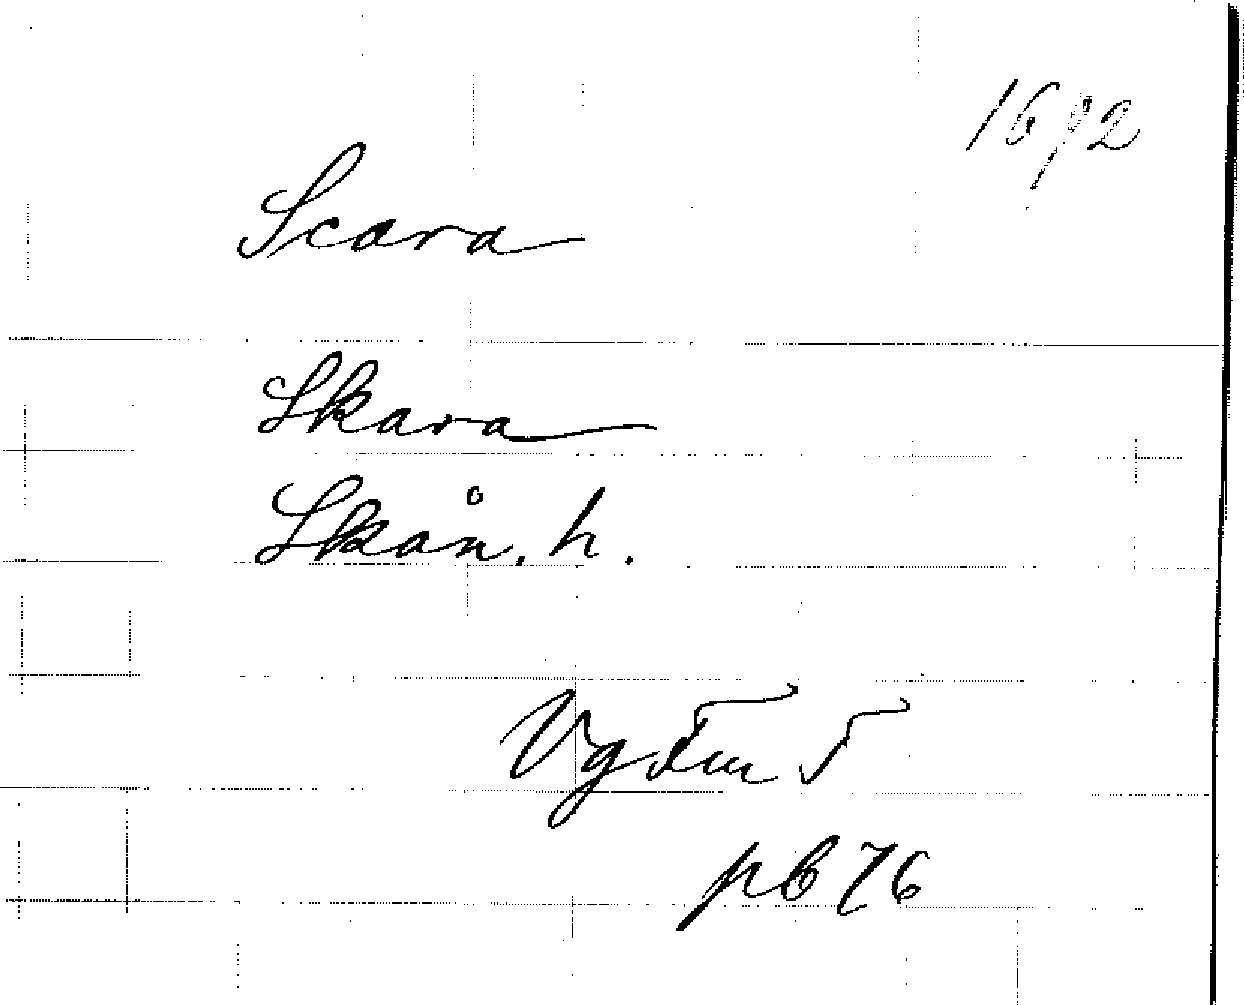 1692
Scara
Skara
Skån. h.
Vg Fm 5
pb 76